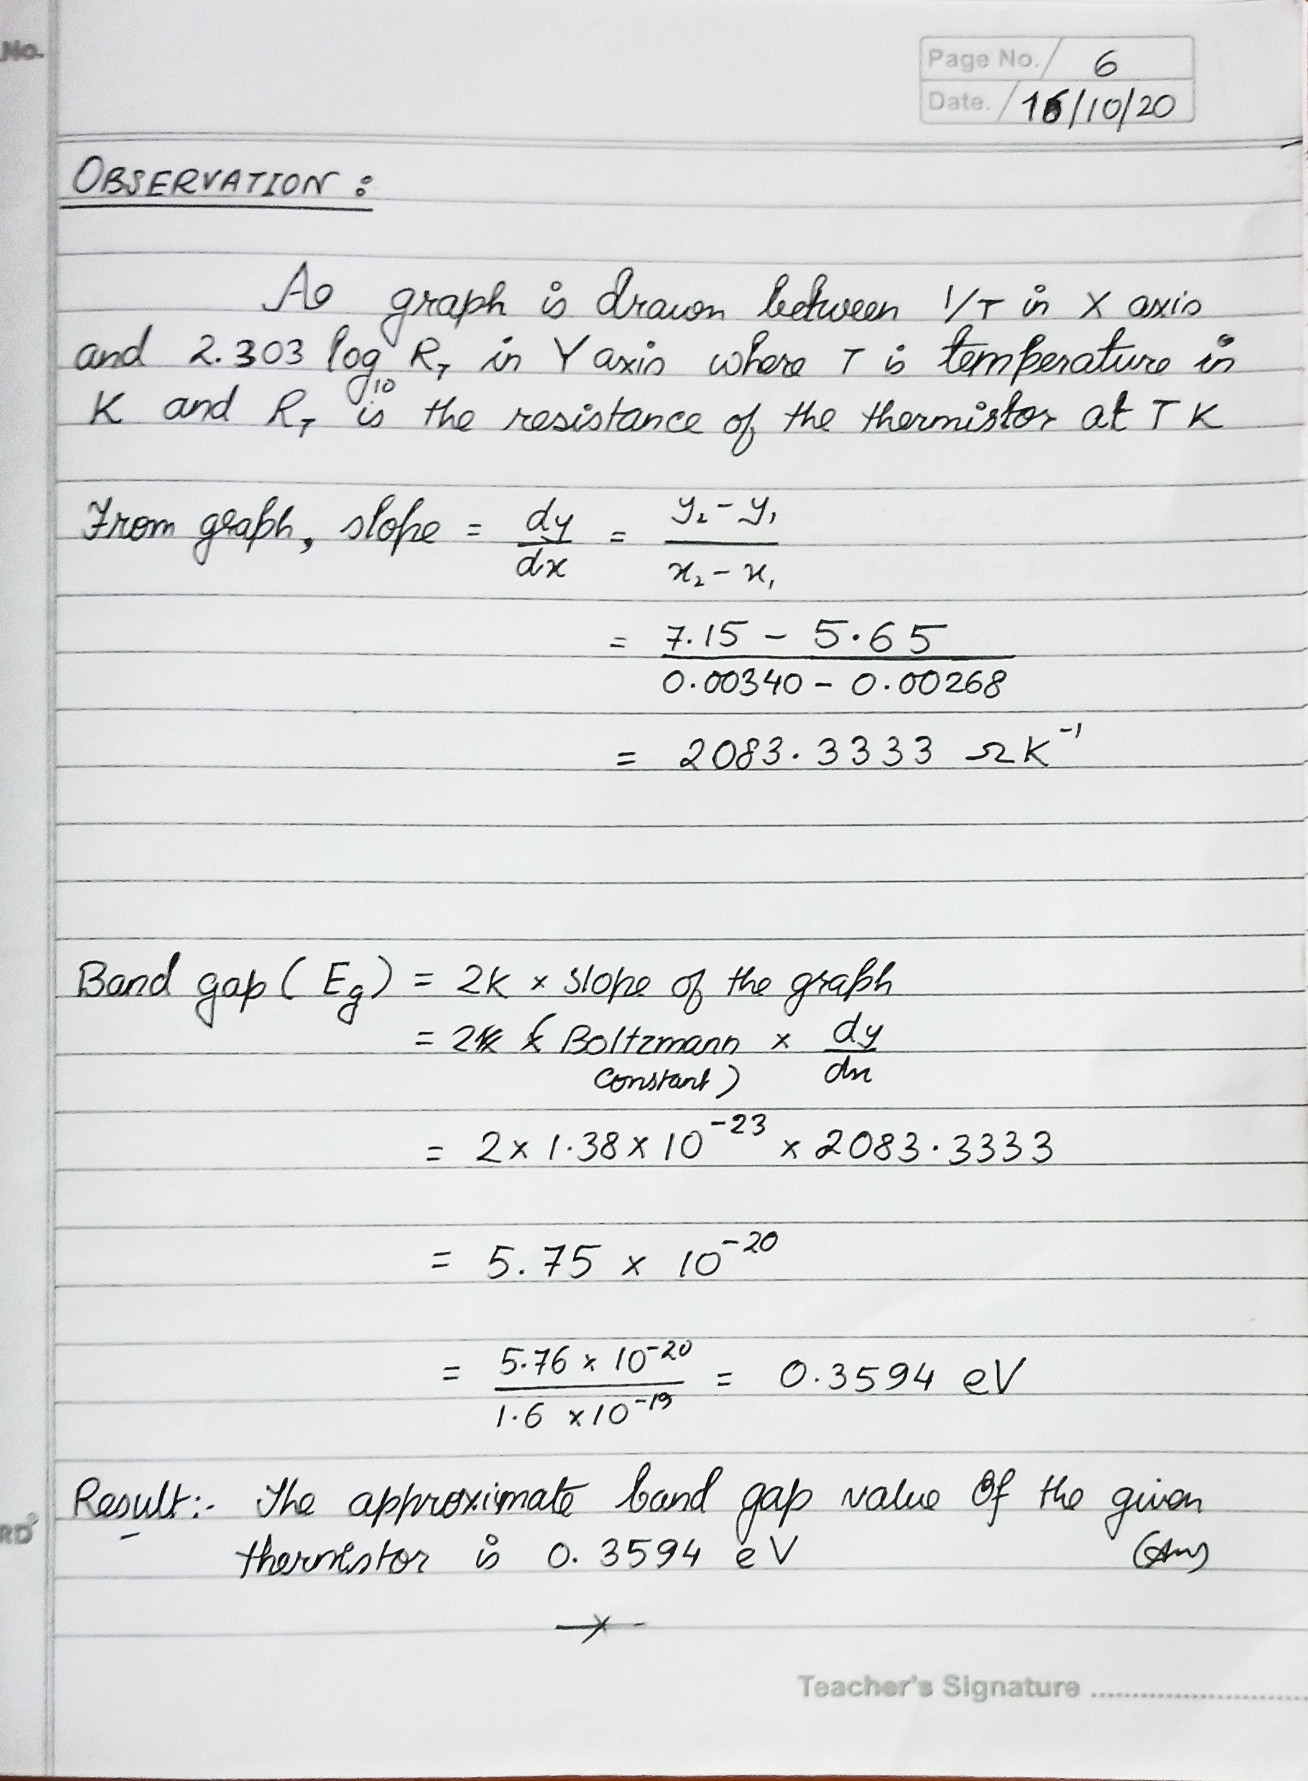 No.
Page No. 6
Date. 16/10/20
OBSERVATION :
As graph is drawn between 1/T in X axis
and 2.303 log₁₀ R_T in Y axis where T is temperature in
K and R_T is the resistance of the thermistor at T K
From graph, slope = dy/dx = (y₂ - y₁)/(x₂ - x₁)
= (7.15 - 5.65)/(0.00340 - 0.00268)
= 2083.3333 ΩK⁻¹
Band gap (Eg) = 2K × slope of the graph
= 2 ( Boltzmann constant) × dy/dx
= 2 × 1.38 × 10⁻²³ × 2083.3333
= 5.75 × 10⁻²⁰
= (5.76 × 10⁻²⁰)/(1.6 × 10⁻¹⁹) = 0.3594 eV
Result:- The approximate band gap value Of the given
thermistor is 0.3594 eV (Ans)
RD
Teacher's Signature ........................